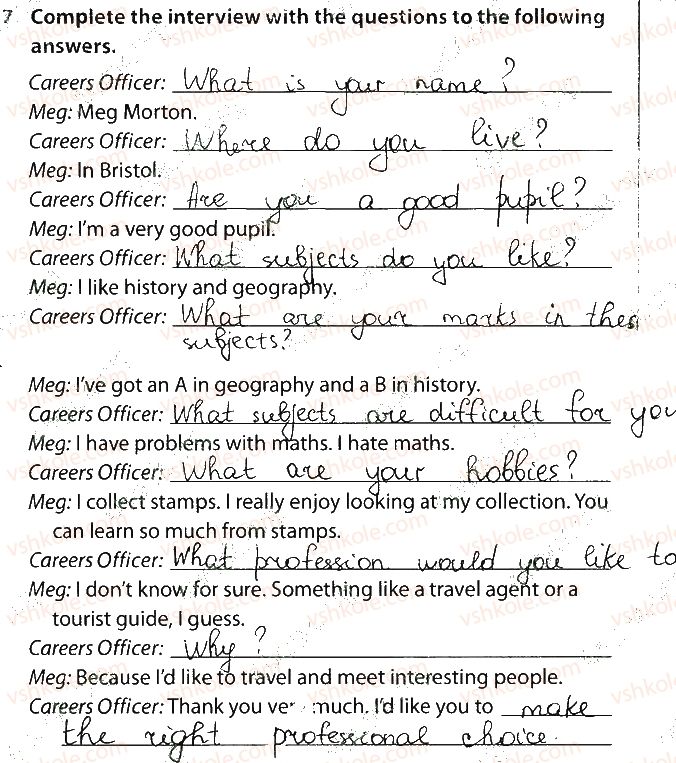 7 Complete the interview with the questions to the following
answers.
Careers Officer: What is your name?
Meg: Meg Morton.
Careers Officer: Where do you live?
Meg: In Bristol.
Careers Officer: Are you a good pupil?
Meg: I'm a very good pupil.
Careers Officer: What subjects do you like?
Meg: I like history and geography.
Careers Officer: What are your marks in these
subjects?
Meg: I've got an A in geography and a B in history.
Careers Officer: What subjects are difficult for you
Meg: I have problems with maths. I hate maths.
Careers Officer: What are your hobbies?
Meg: I collect stamps. I really enjoy looking at my collection. You
can learn so much from stamps.
Careers Officer: What profession would you like to
Meg: I don't know for sure. Something like a travel agent or a
tourist guide, I guess.
Careers Officer: Why?
Meg: Because I'd like to travel and meet interesting people.
Careers Officer: Thank you very much. I'd like you to make
the right professional choice.